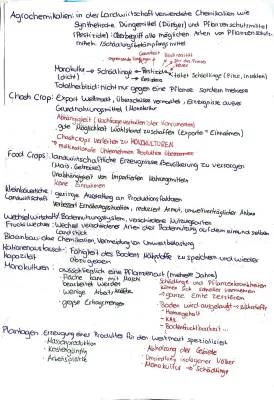 Agrochemikalien: in der Landwirtschaft verwendete Chemikalien wie
synthetische Düngemittel (Dünger) und Pflanzenschutzmittel
(Pestizide): Überbegriff alle möglichen Arten von Pflanzenschutz-
mitteln, (Schädlingsbekämpfungsmittel)
Monokultur → Schädlinge → Pestizide → tötet Schädlinge (Pilze, Insekten)
(dicht)
Totalherbizid: nicht nur gegen eine Pflanze sondern mehrere
Cash Crop: Export Weltmarkt, Überschüsse verwaltet, Erzeugnisse außer
Grundnahrungsmittel
Abhängigkeit (Nachfrage von den Konsumenten)
gute Möglichkeit Wohlstand zu schaffen (Exporte = Einnahmen)
Cash crops verleiten zu MONOKULTUREN
multinationale Unternehmen Produktion übernehmen
Food Crops: landwirtschaftliche Erzeugnisse Bevölkerung zu versorgen
(Mais, Getreide)
Unabhängigkeit von importierten Nahrungsmitteln
Keine Einnahmen
Kleinbäuerliche: geringe Ausstattung an Produktionsfaktoren
Landwirtschaft
Verbessert Ernährungssituation, reduziert Armut, umweltverträglicher Anbau
Wechselwirtschaft: Bodennutzungssystem, verschiedene Nutzungsarten
Fruchtwechsel: Wechsel verschiedener Arten der Bodennutzung auf dem ein und selben
Landstück
Bioanbau: ohne Chemikalien, Vermeidung von Umweltbelastung
Kationenaustausch-: Fähigkeit des Bodens Nährstoffe zu speichern und wieder
kapazität abzugeben
Monokulturen: ausschließlich eine Pflanzenart (mehrere Jahre)
- Fläche kann mit Maschi
bearbeitet werden
- weniger Arbeitskräfte
- große Ertragsmenge
Schädlinge und Pflanzenkrankheiten
können sich schneller vermehren
→ ganze Ernte zerstören
- Boden wird ausgelaugt → Nährstoffe
- Humusgehalt
- KAK
- Bodenfruchtbarkeit...
Plantagen: Erzeugung eines Produktes für den Weltmarkt spezialisiert
- Massenproduktion
- kostengünstig
- Arbeitsplätze
- Abholzung der Gebiete
- Umsiedlung indigener Völker
- Monokultur → Schädlinge